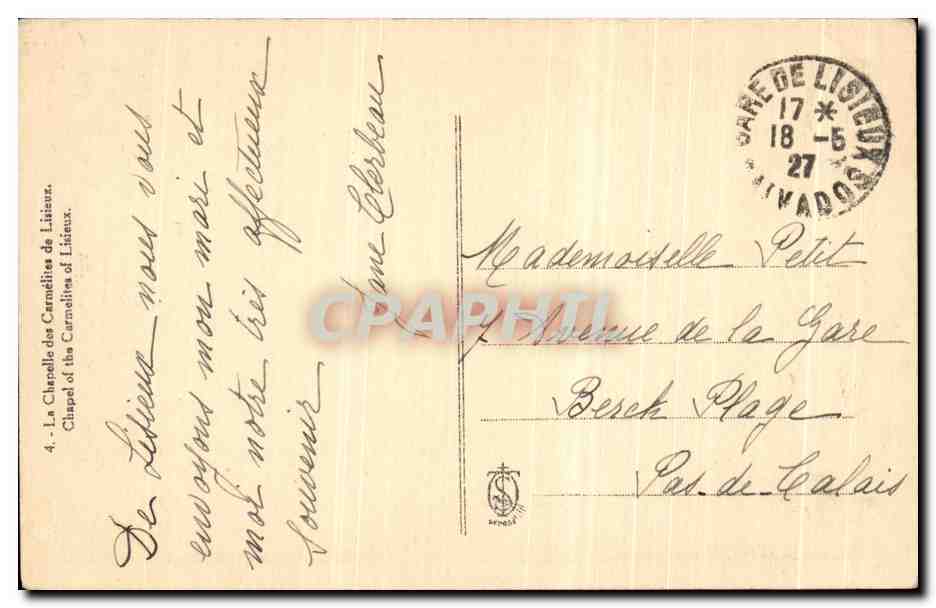 4. - La Chapelle des Carmélites de Lisieux.
Chapel of the Carmelites of Lisieux.
De Lisieux nous vous
envoyons mon mari et
moi notre très affectueux
souvenir
Jane Clerbeau
GARE DE LISIEUX
17 *
18 -5
27
CALVADOS
Mademoiselle Petit
7 Avenue de la Gare
Berck Plage
Pas-de-Calais
CPAPHIL